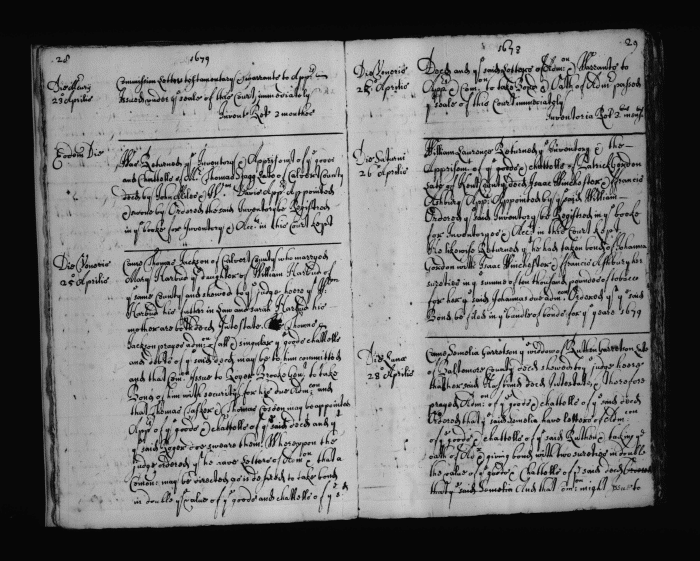 28
1679
Die Mercu
23 Aprilis
Commission Letters testamentary & warrants to Appr
Issued under ye seale of this Court immediately
Invent Ret 2 months
Eodem Die
Was Returned ye Inventory & Apprisemt of ye goods
and Chattells of Mr Thomas Spigg Late of Calvert County
decd by John &
Sworne by Ordered the said Inventory be Registred
in ye booke for Inventory & Acct in this Court kept
Die Veneris
25 Aprilis
Came Thomas Jackson of Calvert County who marryed
Mary Harbud ye daughter of William Harbud of
ye same County and shewed to ye Judge here yt Wm
Harbud his father in Law and Sarah Harbud his
mother are both decd Intestate. Thomas
Jackson prayes admn of all & singular ye goods chattells
and debts of ye said decd may be to him committed
and that Com Issue to Roger Brooke Gent to take
Bond of him with security for his due Admcon and
that Thomas Tasker & Thomas Cosden may be appointed
Apprs of ye goods & chattells of ye said decd and yt
ye said Roger doe sweare them. Whereupon the
Judge ordered yt he have Letters of Admcon & that a
Comon may be directed as is desired to take bond
in double ye value of ye goods and chattells of ye sd
1673
29
Die Veneris
25 Aprilis
Decd and ye said Letters of Admcon Warrants to
Appr & Comon to take Bond & Oath of Admr passed
ye seale of this Court immediately
Inventoria Ret 2 mens
Die Saturni
26 Aprilis
William Laurence Returned ye Inventory & the
Apprisemt of ye goods & chattells of Patrick Gordon
Late of Kent County decd Isaac Winchester & Francis
Ashbury Apprs Appointed by ye said William
Ordered ye said Inventory be Registred in ye booke
for Inventorys & Acct in this Court kept
He likewise Returned yt he had taken bond of Johanna
Gordon with Isaac Winchester & Francis Ashbury her
sureties in ye summe of ten thousand pounds of tobacco
for her ye said Johannas due admcon Ordered yt ye said
Bond be filed in ye bundle of bonds for ye yeare 1679
Die Lunæ
28 Aprilis
Came Semelia Garretson ye widdow of Ruthen Garretson Late
of Baltemore County decd shewed to ye Judge here
that her said Husband decd Intestate & therefore
prayed Admcon of ye goods & chattells of ye said decd
Ordered that ye said Semelia have letters of Admcon
of ye goods & chattells of ye said Ruthen & taking ye
oath of Admx & giving bond with two sureties in double
the value of ye goods & Chattells of ye said decd
that ye said Semelia And that Comon might issue to